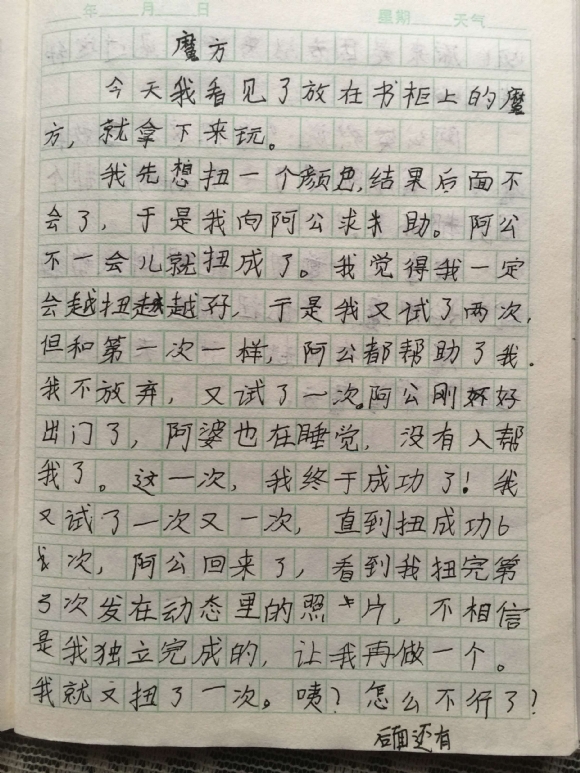 年 月 日 星期 天气
魔方
今天我看见了放在书柜上的魔
方，就拿下来玩。
我先想扭一个颜色，结果后面不
会了，于是我向阿公求助。阿公
不一会儿就扭成了。我觉得我一定
会越扭越越好，于是我又试了两次，
但和第一次一样，阿公都帮助了我.
我不放弃，又试了一次。阿公刚好
出门了，阿婆也在睡觉，没有人帮
我了。这一次，我终于成功了！我
又试了一次又一次，直到扭成功6
次，阿公回来了，看到我扭完第
3次发在动态里的照片，不相信
是我独立完成的，让我再做一个。
我就又扭了一次。咦？怎么不行了？
后面还有